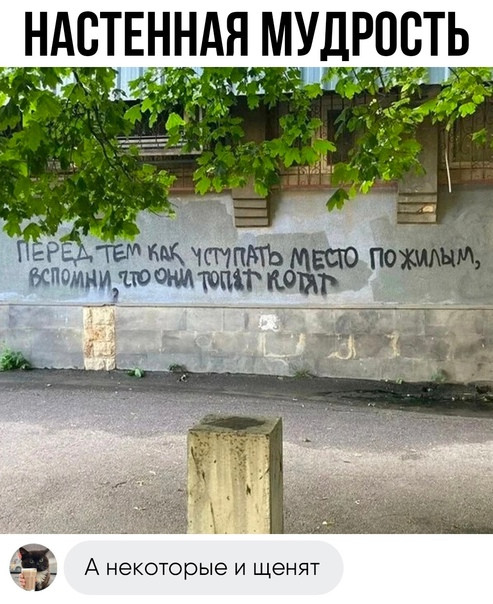 НАСТЕННАЯ МУДРОСТЬ
ПЕРЕД ТЕМ КАК УСТУПАТЬ МЕСТО ПОЖИЛЫМ,
ВСПОМНИ, ЧТО ОНИ ТОПЯТ КОТЯТ
А некоторые и щенят